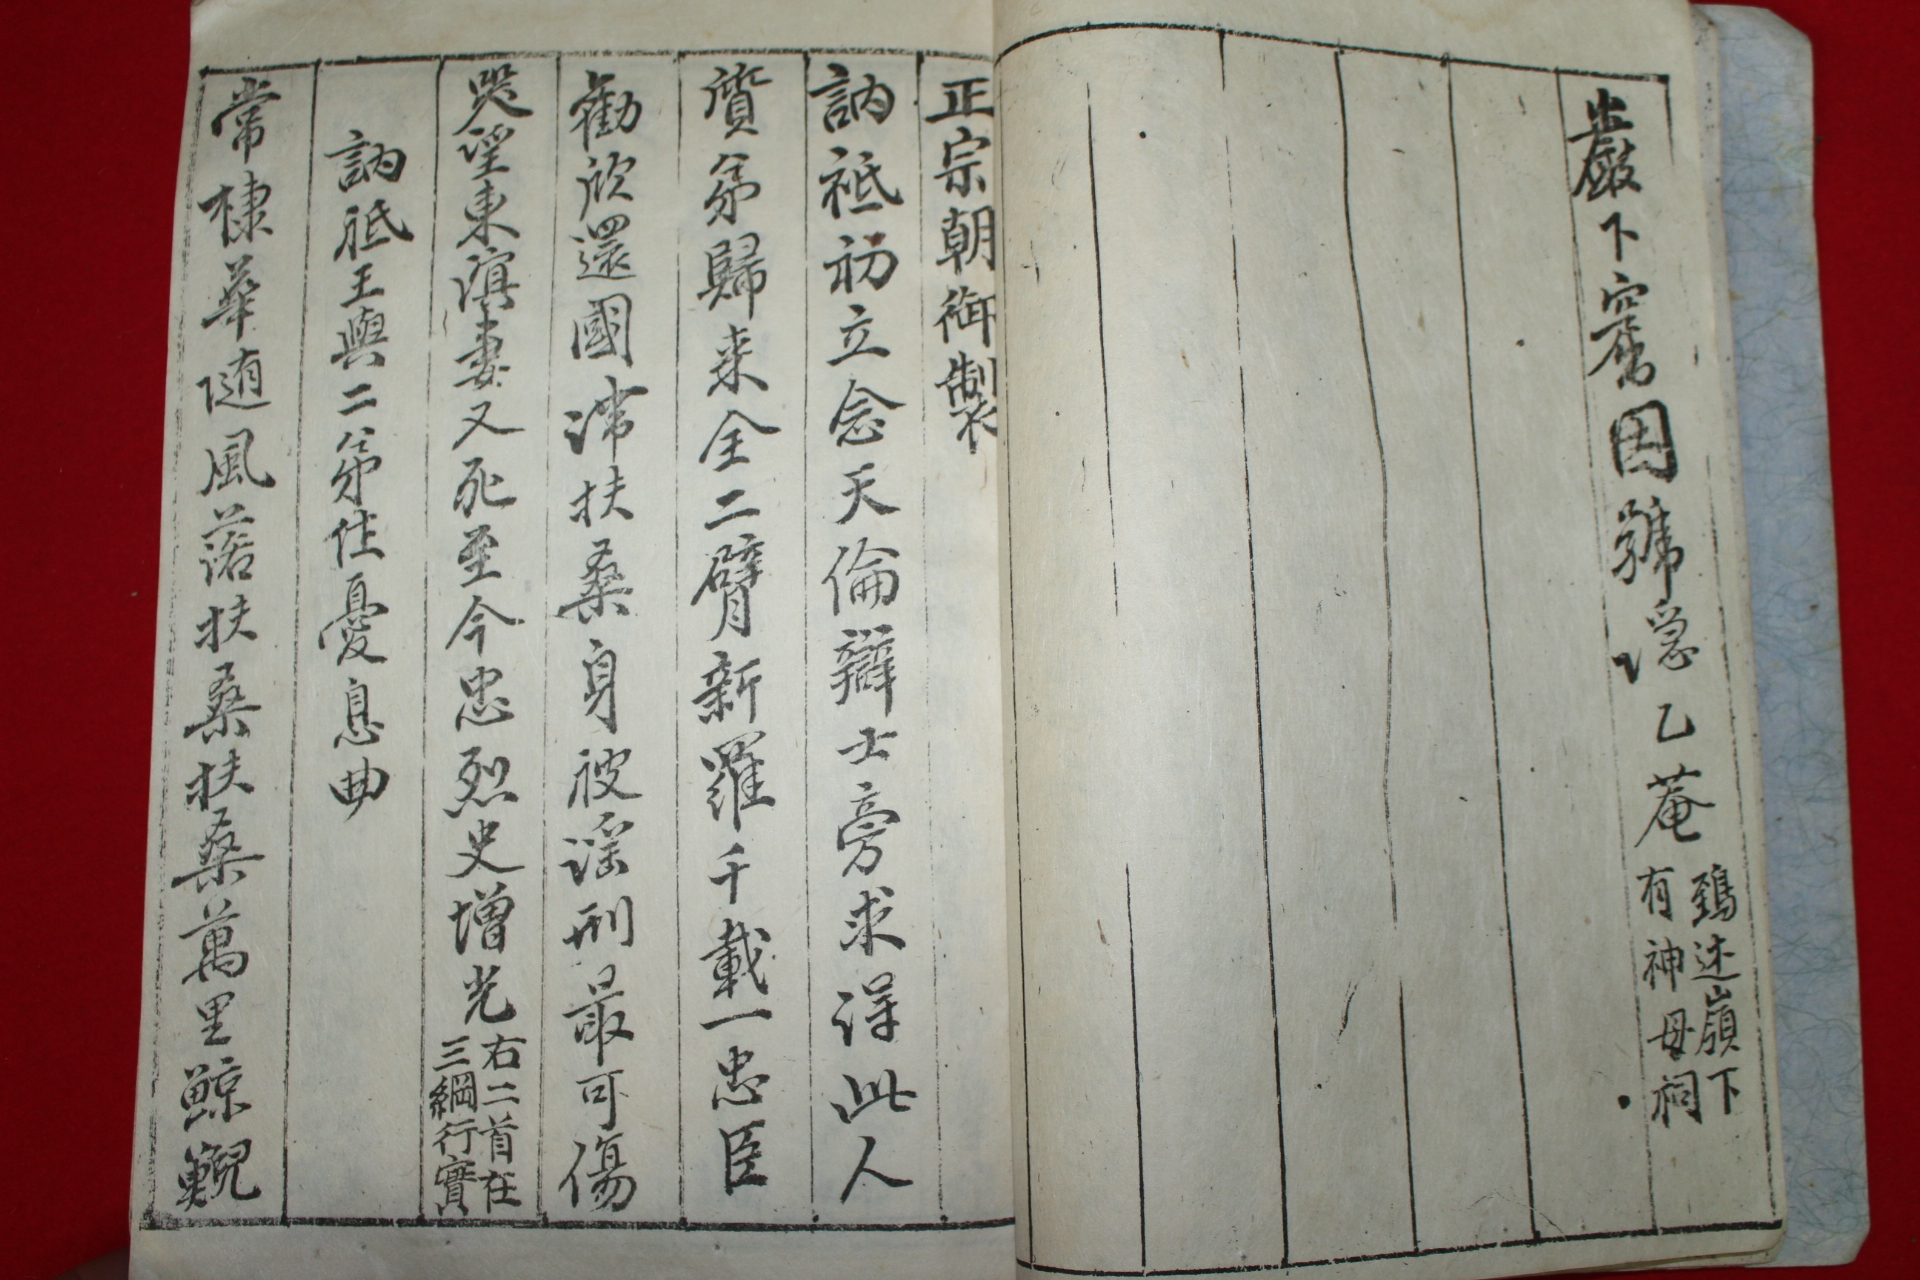 巖下窟因號隱乙菴
鵄述嶺下
有神母祠
正宗朝御製
訥祗初立念天倫辯士旁求得此人
質弟歸来全二臂新羅千載一忠臣
勸欣還國滯扶桑身被淫刑最可傷
哭望東溟妻又死至今忠烈史增光
右二首在
三綱行實
訥祗王與二弟作憂息曲
常棣華随風落扶桑扶桑萬里鯨鯢